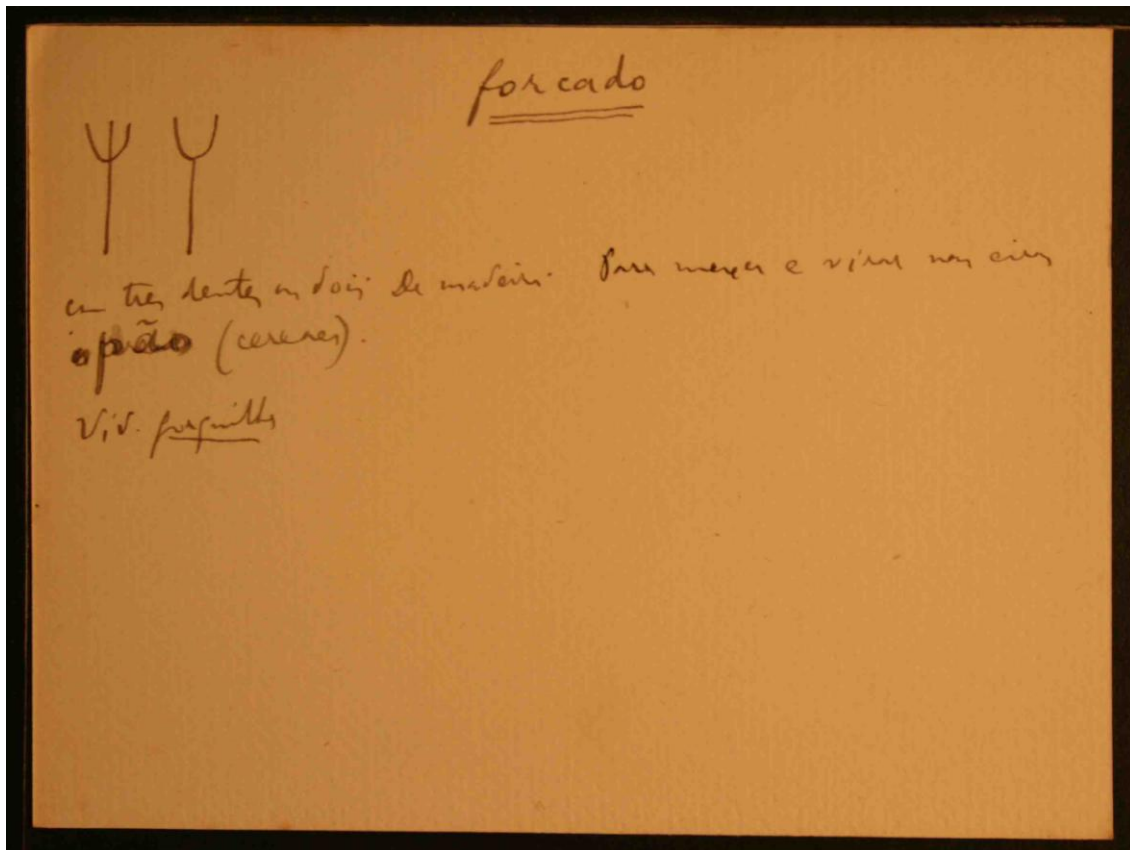 forcado
com tres dentes ou dois de madeira. Para mexer e virar nas eiras
o pão (cereaes).
Vid. forquilha